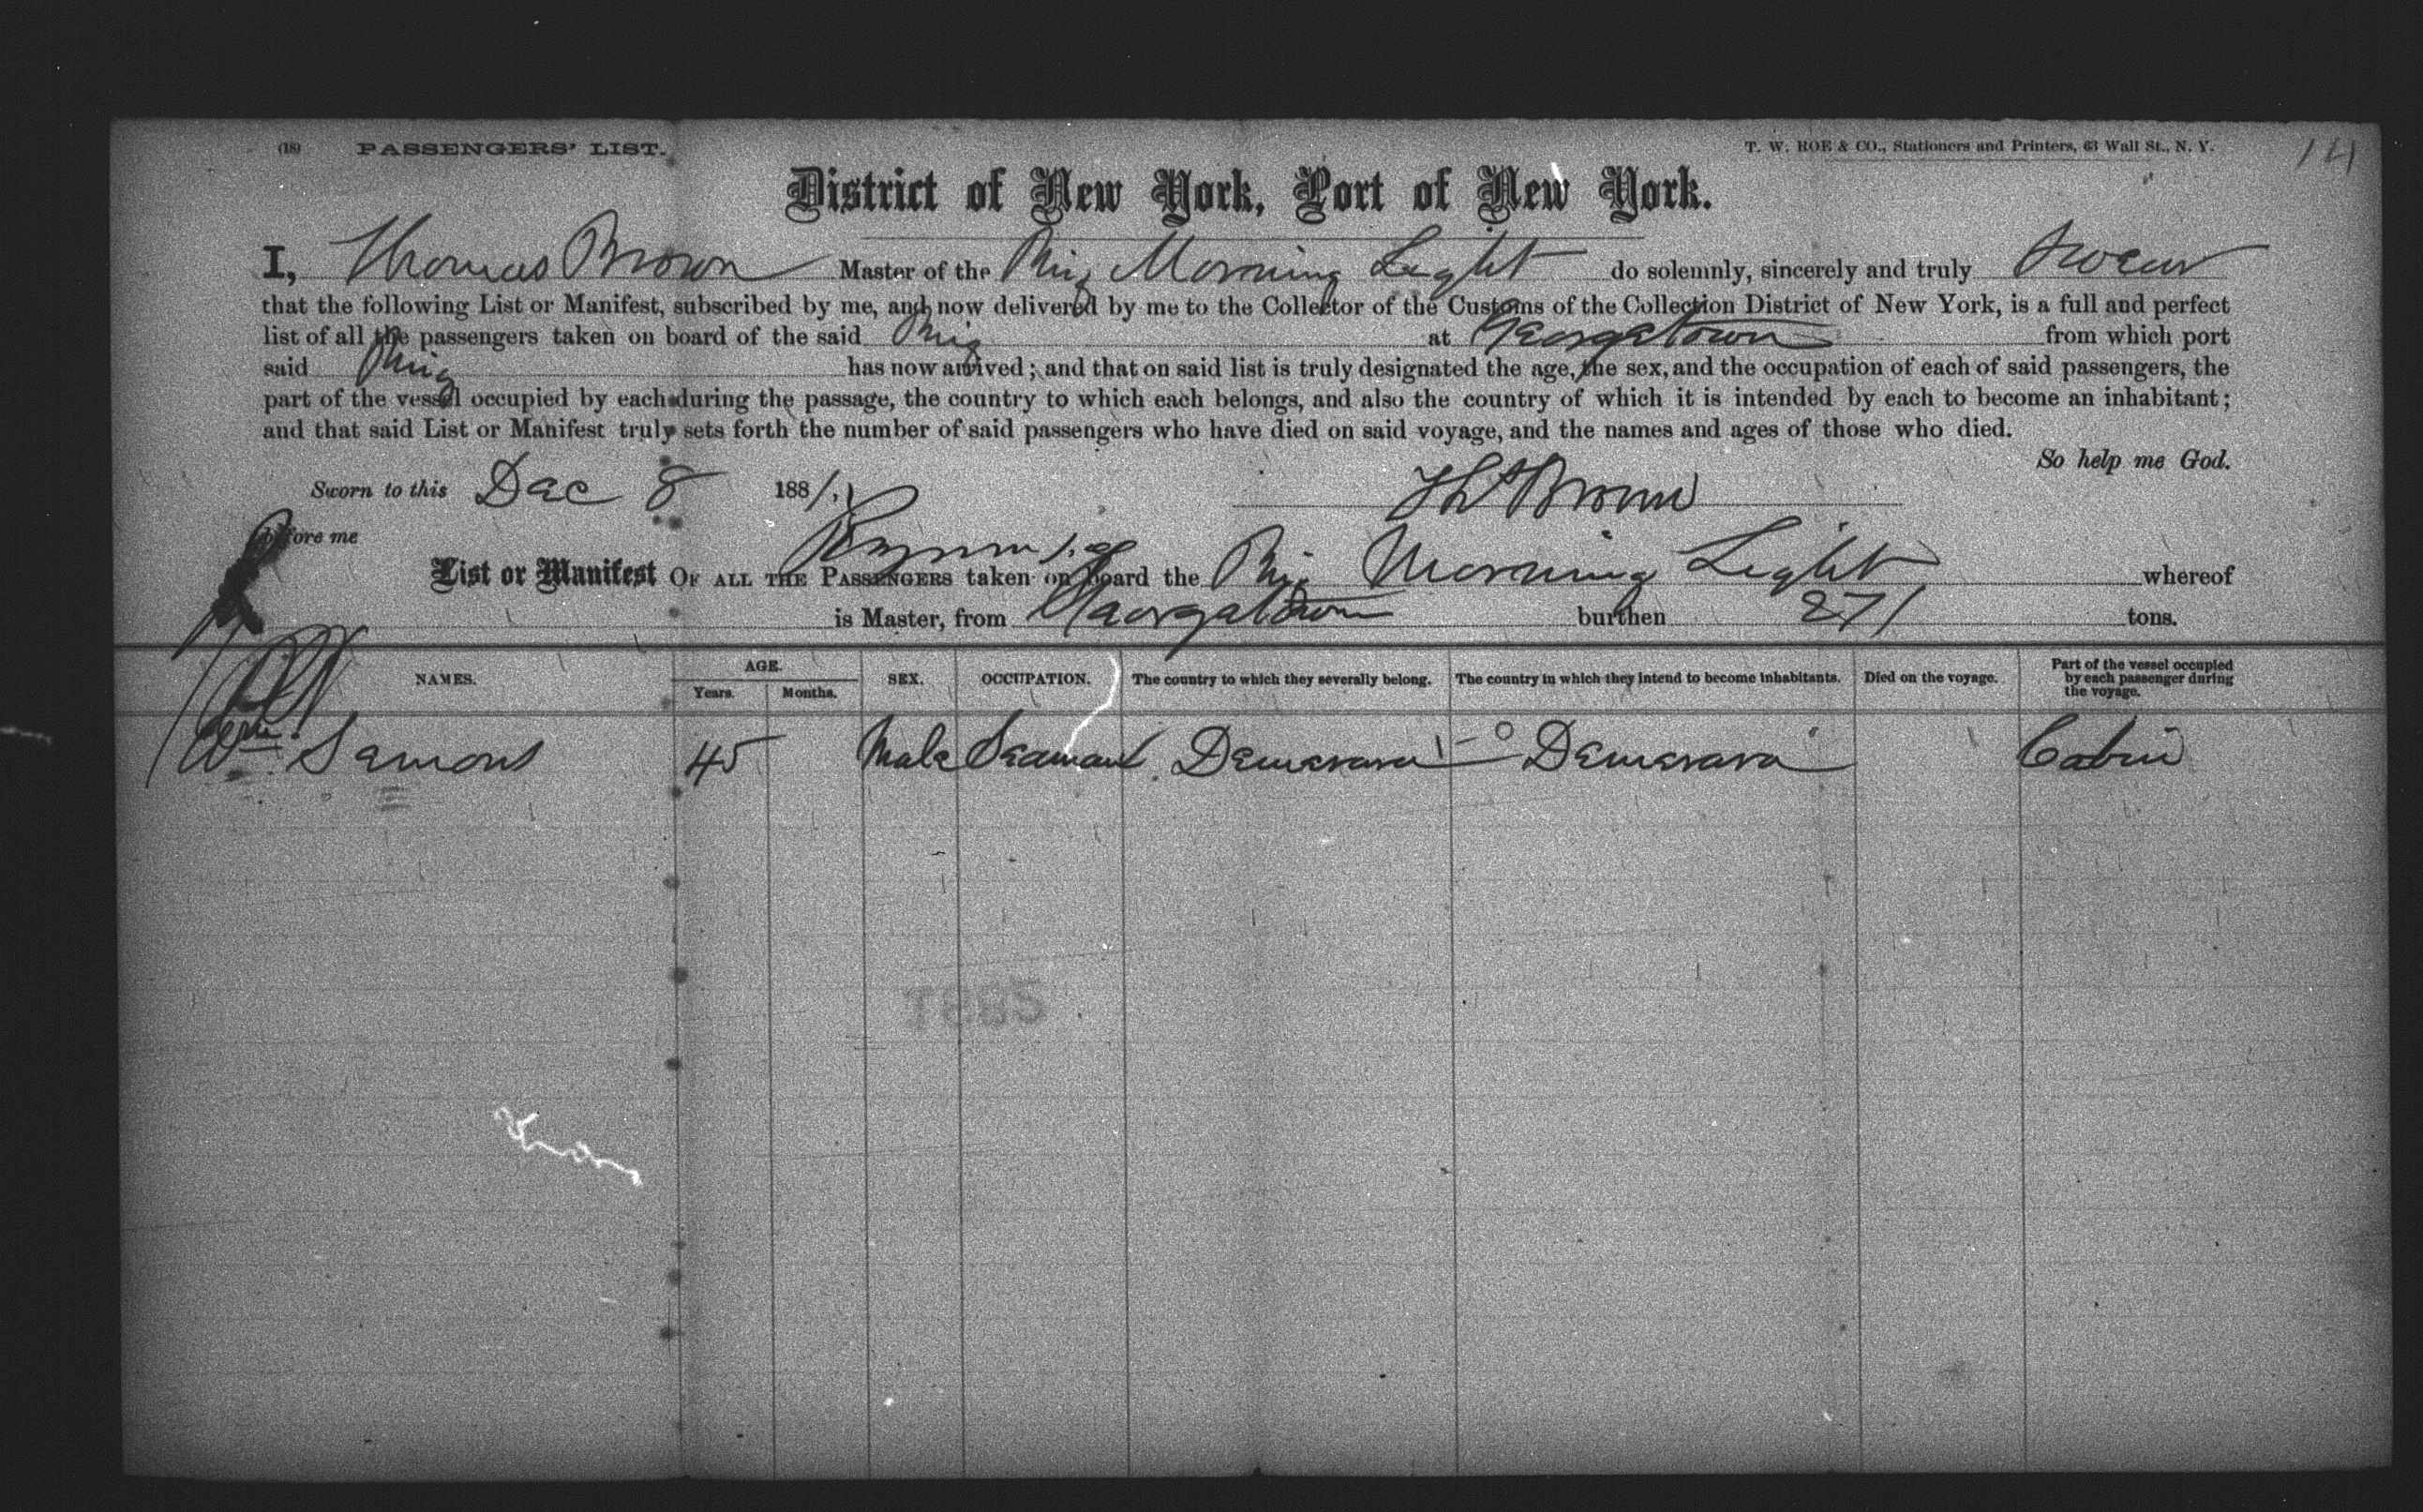 (18) PASSENGERS' LIST. T. W. ROE & CO., Stationers and Printers, 63 Wall St., N. Y. 14
District of New York, Port of New York.
I, Thomas Brown Master of the Brig Morning Light do solemnly, sincerely and truly swear
that the following List or Manifest, subscribed by me, and now delivered by me to the Collector of the Customs of the Collection District of New York, is a full and perfect
list of all the passengers taken on board of the said Brig at Georgetown from which port
said Brig has now arrived; and that on said list is truly designated the age, the sex, and the occupation of each of said passengers, the
part of the vessel occupied by each during the passage, the country to which each belongs, and also the country of which it is intended by each to become an inhabitant;
and that said List or Manifest truly sets forth the number of said passengers who have died on said voyage, and the names and ages of those who died.
So help me God.
Sworn to this Dec 8 1881, Ths Brown
before me
List or Manifest OF ALL THE PASSENGERS taken on board the Brig Morning Light whereof
is Master, from Georgetown burthen 271 tons.
NAMES. AGE. Years. Months. SEX. OCCUPATION. The country to which they severally belong. The country in which they intend to become inhabitants. Died on the voyage. Part of the vessel occupied by each passenger during the voyage.
Wm. Semons 45 Male Seaman Demerara Demerara Cabin